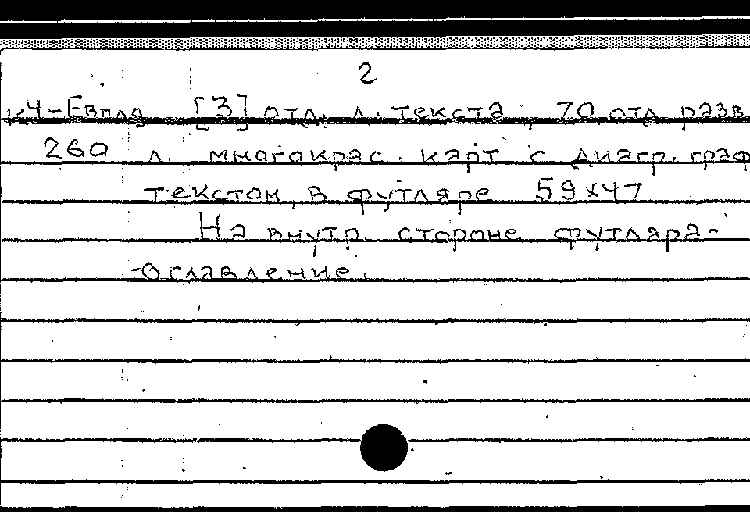 2
к4-Евпла [3] отд. л. текста, 70 отд разв
260 л. многокрас. карт с диагр. граф
текстом, в футляре 59х47
На внутр. стороне футляра-
оглавление.